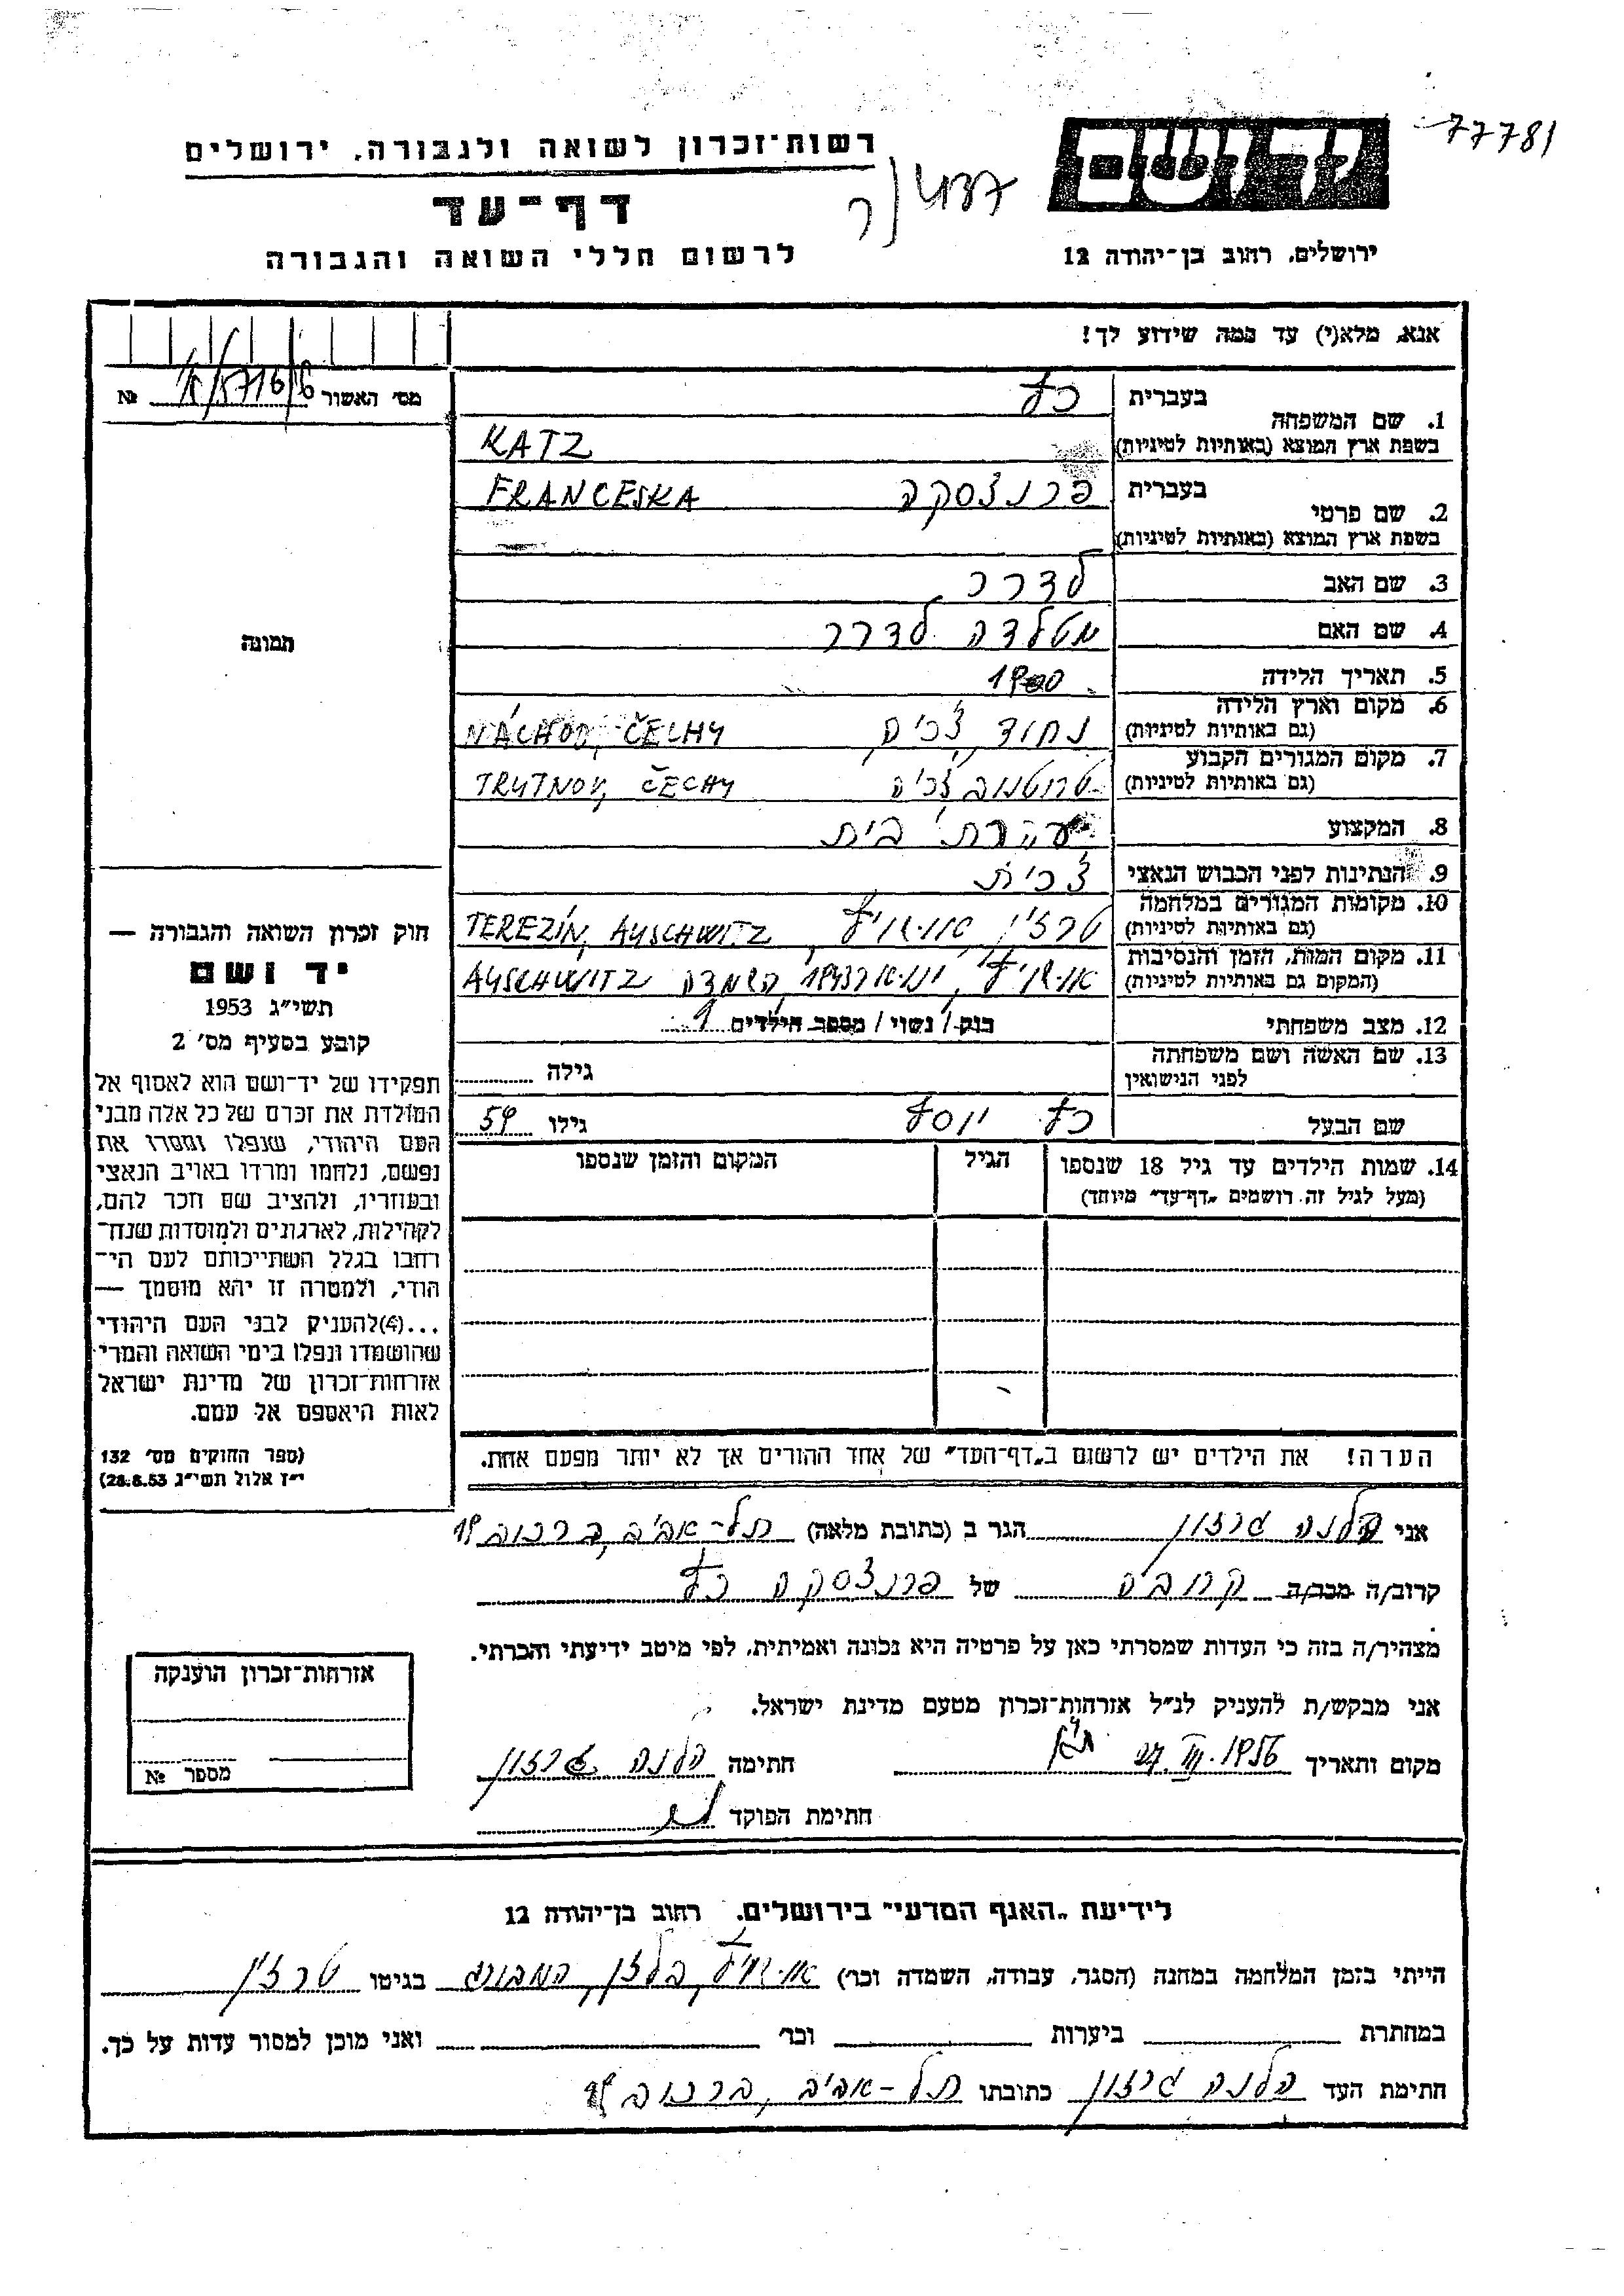 77781
רשות־זכרון לשואה ולגבורה, ירושלים
דף־עד
לרשום חללי השואה והגבורה
יד ושם
ירושלים, רחוב בן־יהודה 12
אנא, מלא(י) עד כמה שידוע לך!
מס׳ האשור №
1. שם המשפחה
בעברית כץ
בשפת ארץ המוצא (באותיות לטיניות) KATZ
2. שם פרטי
בעברית פרנצסקה FRANCESKA
בשפת ארץ המוצא (באותיות לטיניות)
3. שם האב לדרר
4. שם האם מטלדה לדרר
5. תאריך הלידה 1900
6. מקום וארץ הלידה נחוד, צ׳כיה NÁCHOD, ČECHY
(גם באותיות לטיניות)
7. מקום המגורים הקבוע טרוטנוב צ׳כיה TRUTNOV, ČECHY
(גם באותיות לטיניות)
8. המקצוע עקרת בית
9. הנתינות לפני הכבוש הנאצי צ׳כית
10. מקומות המגורים במלחמה טרזין, אושויץ TEREZÍN, AUSCHWITZ
(גם באותיות לטיניות)
11. מקום המות, הזמן והנסיבות אושויץ, ינואר 1943, השמדה AUSCHWITZ
(המקום גם באותיות לטיניות)
12. מצב משפחתי רוק/ נשוי / מספר הילדים
13. שם האשה ושם משפחתה גילה
לפני הנישואין
שם הבעל כץ יוסף גילו 59
14. שמות הילדים עד גיל 18 שנספו הגיל המקום והזמן שנספו
(מעל לגיל זה, רושמים „דף־עד״ מיוחד)
הערה! את הילדים יש לרשום ב„דף־העד״ של אחד ההורים אך לא יותר מפעם אחת.
תמונה
חוק זכרון השואה והגבורה —
יד ושם
תשי״ג 1953
קובע בסעיף מס׳ 2
תפקידו של יד־ושם הוא לאסוף אל
המולדת את זכרם של כל אלה מבני
העם היהודי, שנפלו ומסרו את
נפשם, נלחמו ומרדו באויב הנאצי
ובעוזריו, ולהציב שם וזכר להם,
לקהילות, לארגונים ולמוסדות שנח־
רבו בגלל השתייכותם לעם הי־
הודי, ולמטרה זו יהא מוסמך —
...(4) להעניק לבני העם היהודי
שהושמדו ונפלו בימי השואה והמרי
אזרחות־זכרון של מדינת ישראל
לאות היאספם אל עמם.
(ספר החוקים מס׳ 132
י״ז אלול תשי״ג 28.8.53)
אני הלנה גרזון הגר ב (כתובת מלאה) תל־אביב, ברנוב 19
קרוב/ה מכר/ה קרובה של פרנצסקה כץ
מצהיר/ה בזה כי העדות שמסרתי כאן על פרטיה היא נכונה ואמיתית, לפי מיטב ידיעתי והכרתי.
אני מבקש/ת להעניק לנ״ל אזרחות־זכרון מטעם מדינת ישראל.
מקום ותאריך ת״א 27. III. 1956 חתימה הלנה גרזון
חתימת הפוקד
אזרחות־זכרון הוענקה
מספר №
לידיעת „האגף המדעי״ בירושלים, רחוב בן־יהודה 12
הייתי בזמן המלחמה במחנה (הסגר, עבודה, השמדה וכר׳) אושויץ, בלזן, המבורג בגיטו טרזין
במחתרת ביערות וכר׳ ואני מוכן למסור עדות על כך.
חתימת העד הלנה גרזון כתובתו תל־אביב, ברנוב 19